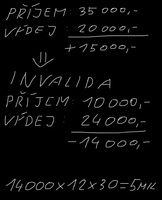 PŘÍJEM: 35 000,-
VÝDEJ: 20 000,-
+15000,-
⇓
INVALIDA
PŘÍJEM: 10000,-
VÝDEJ: 24000,-
-14000,-
14000×12×30=5MIL